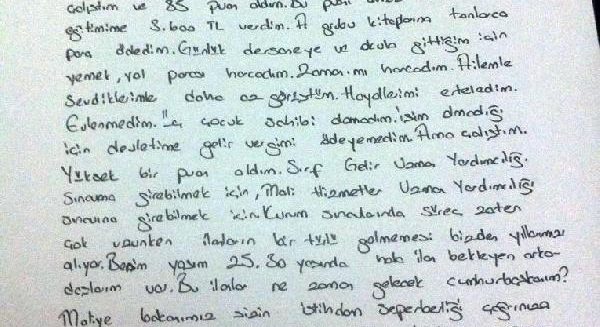 çalıştım ve 85 puan aldım. Bu puan
eğitimime 3.600 TL verdim. A grubu kitaplarına tonlarca
para ödedim. Günlük dersaneye ve okula gittiğim için
yemek, yol parası harcadım. Zamanımı harcadım. Ailemle
Sevdiklerimle daha az görüştüm. Hayallerimi erteledim.
Evlenmedim. Üç çocuk sahibi olamadım. İşim olmadığı
için devletime gelir vergimi ödeyemedim. Ama çalıştım.
Yüksek bir puan aldım. Sırf Gelir Uzman Yardımcılığı
Sınavına girebilmek için, Mali Hizmetler Uzman Yardımcılığı
sınavına girebilmek için. Kurum sınavlarında süreç zaten
çok uzunken ilanların bir türlü gelmemesi bizden yıllarımızı
alıyor. Benim yaşım 25. 30 yaşında hala ilan bekleyen arka-
daşlarım var. Bu ilanlar ne zaman gelecek cumhurbaşkanım?
Maliye bakanımız sizin istihdam seferberliği çağrınıza